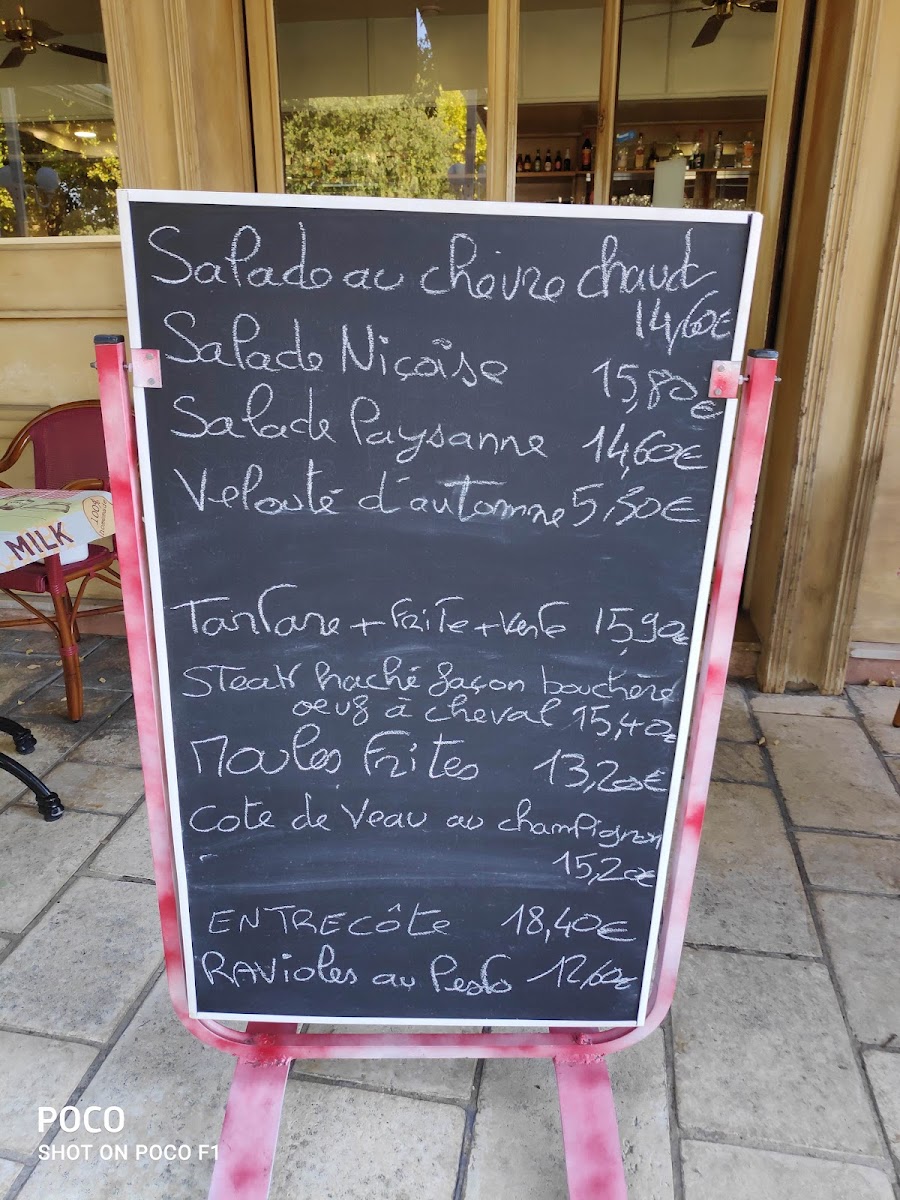 Salade au chèvre chaud
14,60€
Salade Niçoise 15,80€
Salade Paysanne 14,60€
Velouté d'automne 5,80€
Tartare + Frite + verte 15,90€
Steak haché façon bouchère
oeuf à cheval 15,40€
Moules Frites 13,20€
Cote de Veau au champignon
15,20€
ENTRECÔte 18,40€
RAVioles au Pesto 12,60€
MILK
100%
POCO
SHOT ON POCO F1